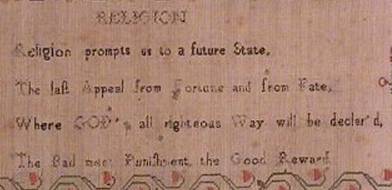 RELIGION
Religion prompts us to a future State,
The laſt Appeal from Fortune and from Fate,
Where GOD's all righteous Way will be declar'd,
The Bad meet Puniſhment, the Good Reward